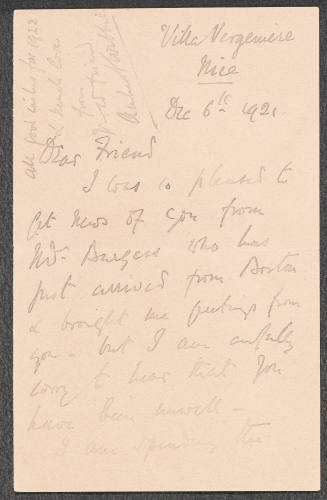 Villa Vergemère
Nice
Dec 6th 1921.
Dear Friend
I was so pleased to
get news of you from
Mrs. Burgess who has
just arrived from Boston
& brought me greetings from
you - but I am awfully
sorry to hear that you
have been unwell -
I am spending the
all good wishes for 1922
& much love
from
friend